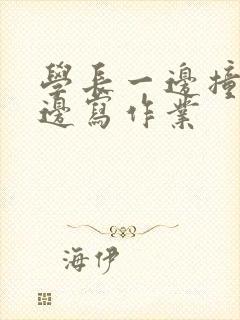 學長一邊撞
邊寫作業
海伊